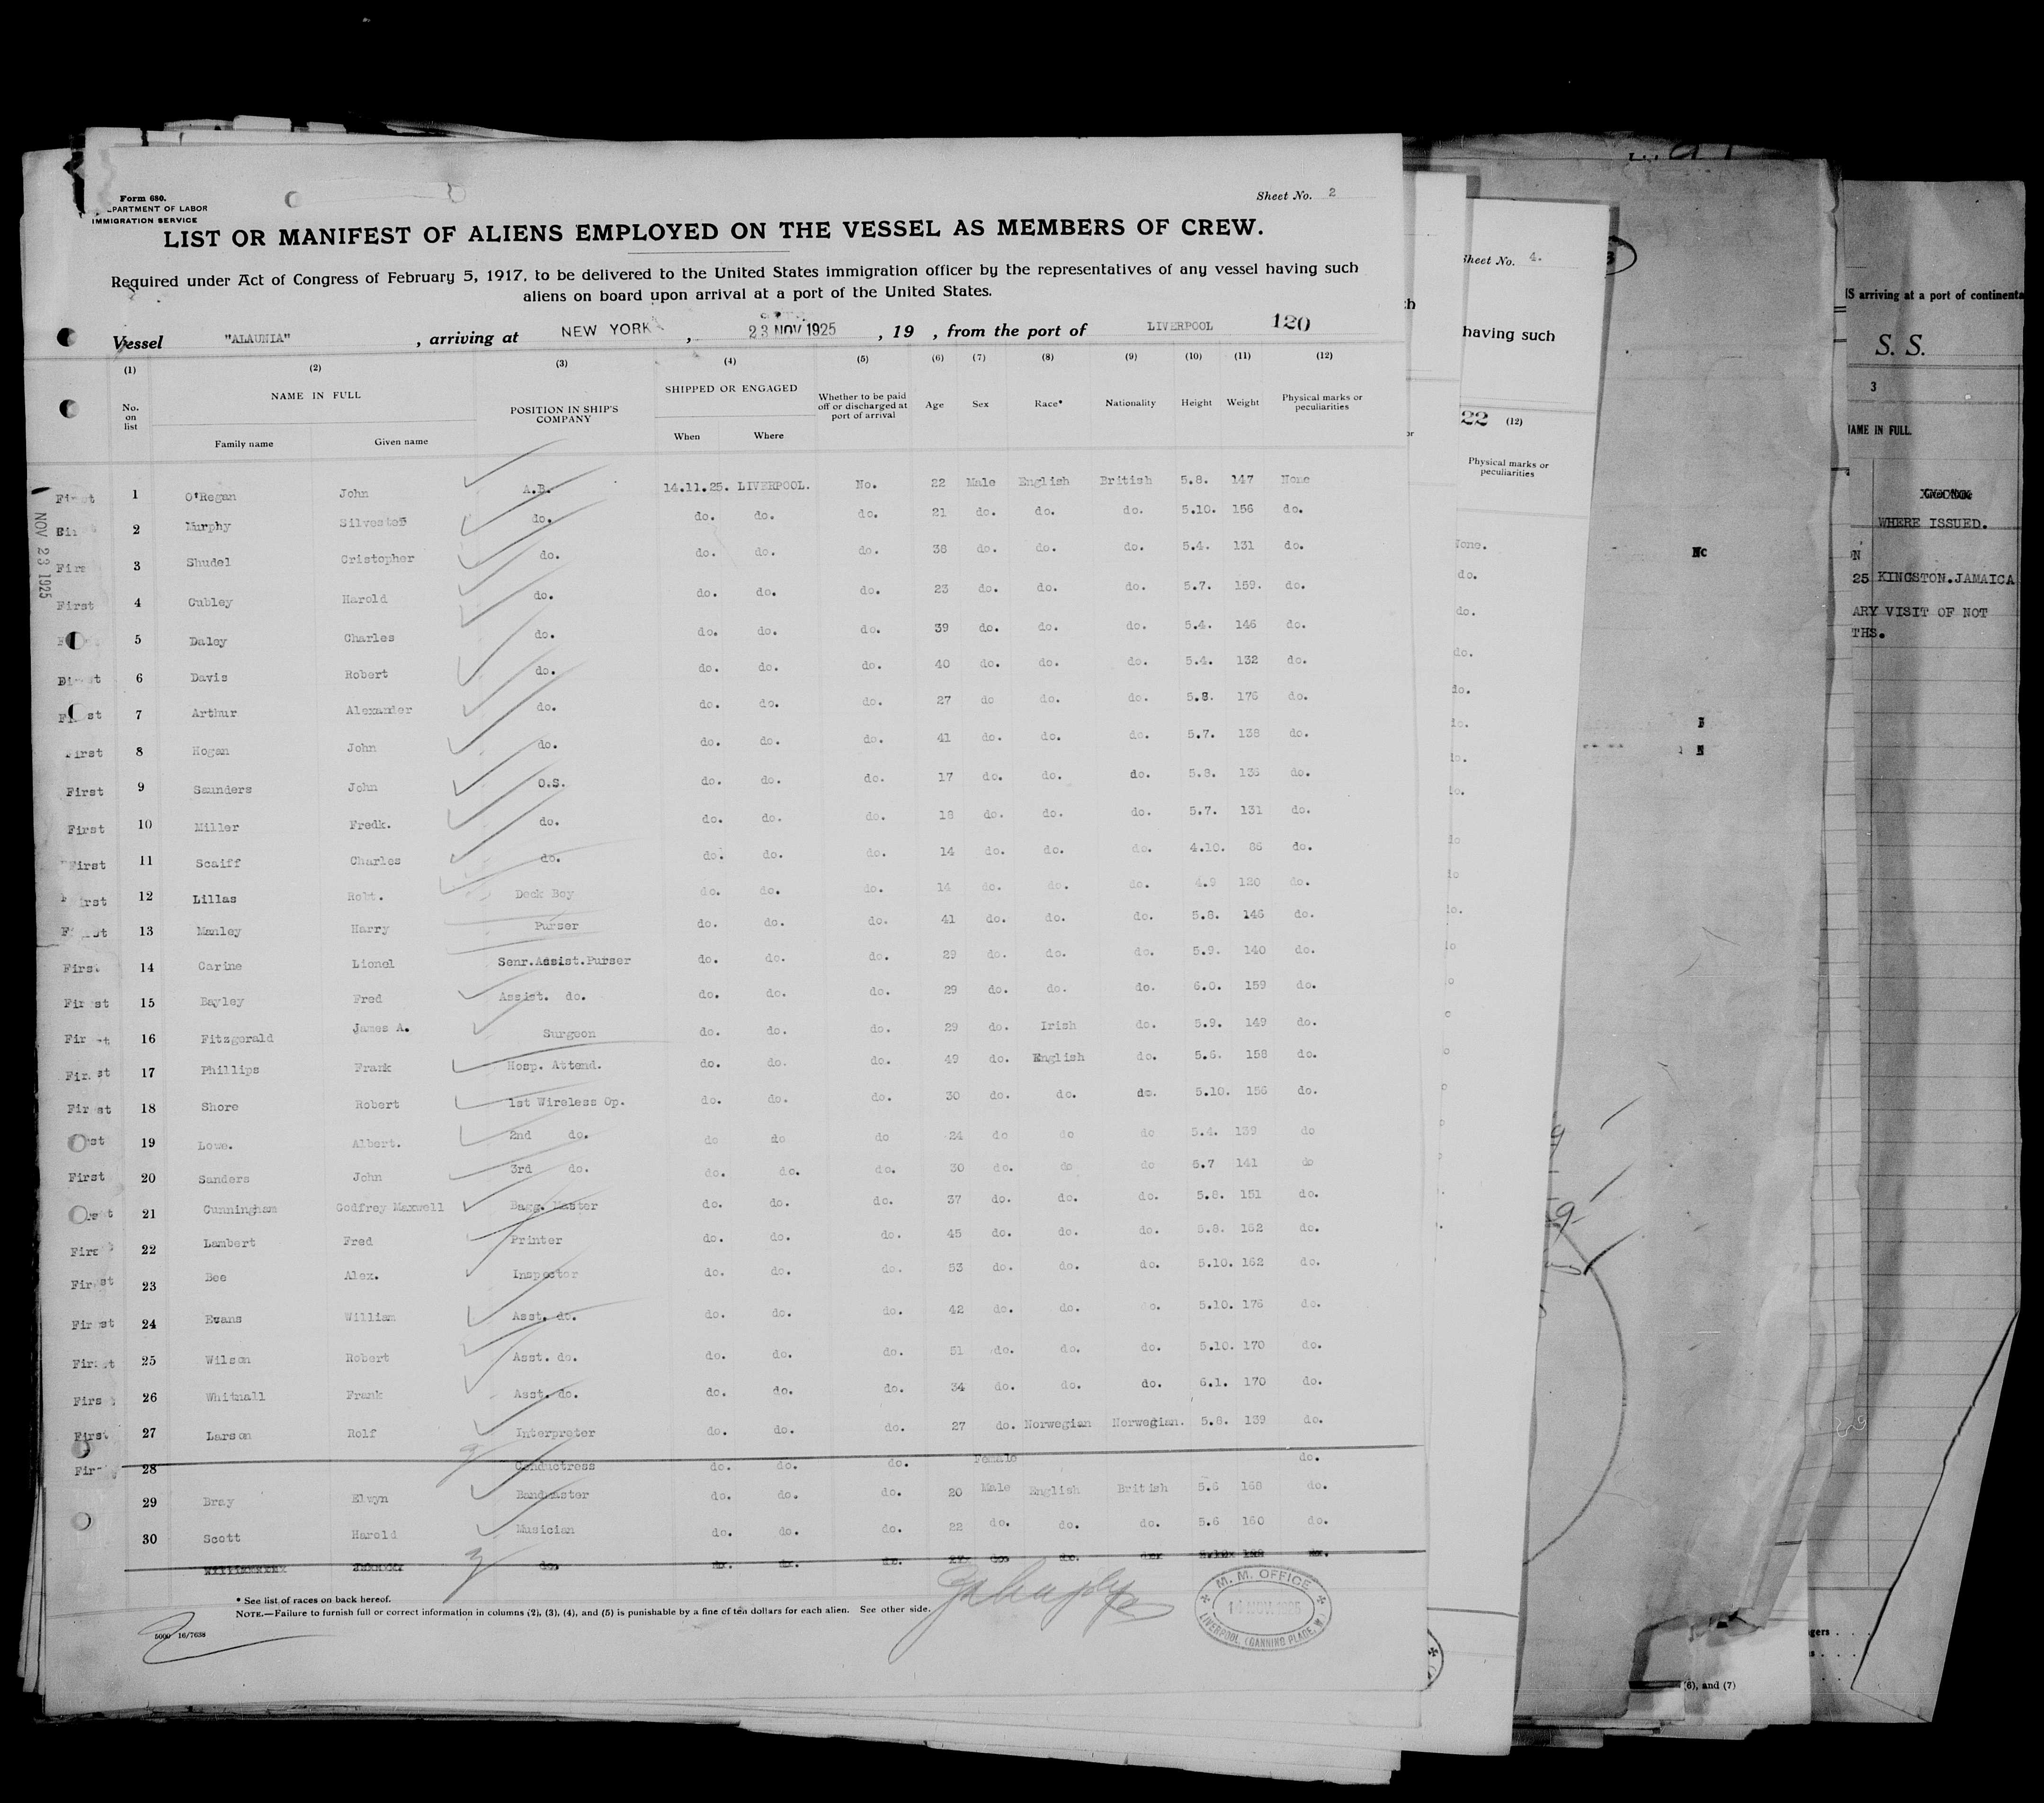 Form 680.
DEPARTMENT OF LABOR
IMMIGRATION SERVICE
Sheet No. 2
LIST OR MANIFEST OF ALIENS EMPLOYED ON THE VESSEL AS MEMBERS OF CREW.
Required under Act of Congress of February 5, 1917, to be delivered to the United States immigration officer by the representatives of any vessel having such
aliens on board upon arrival at a port of the United States.
Vessel "ALAUNIA", arriving at NEW YORK, 23 NOV 1925, 19 , from the port of LIVERPOOL 120
(1) (2) (3) (4) (5) (6) (7) (8) (9) (10) (11) (12)
No. on list NAME IN FULL POSITION IN SHIP'S COMPANY SHIPPED OR ENGAGED Whether to be paid off or discharged at port of arrival Age Sex Race* Nationality Height Weight Physical marks or peculiarities
Family name Given name When Where
First 1 O'Regan John A.B. 14.11.25. LIVERPOOL. No. 22 Male English British 5.8. 147 None
2 Murphy Silvester do. do. do. do. 21 do. do. do. 5.10. 156 do.
Firs 3 Shudel Cristopher do. do. do. do. 38 do. do. do. 5.4. 131 do.
First 4 Cubley Harold do. do. do. do. 23 do. do. do. 5.7. 159. do.
5 Daley Charles do. do. do. do. 39 do. do. do. 5.4. 146 do.
First 6 Davis Robert do. do. do. do. 40 do. do. do. 5.4. 132 do.
First 7 Arthur Alexander do. do. do. do. 27 do do. do. 5.8. 176 do.
First 8 Hogan John do. do. do. do. 41 do. do. do. 5.7. 138 do.
First 9 Saunders John O.S. do. do. do. 17 do. do. do. 5.8. 136 do.
First 10 Miller Fredk. do. do. do. do. 18 do. do. do. 5.7. 131 do.
First 11 Scaiff Charles do. do. do. do. 14 do. do. do. 4.10. 86 do.
First 12 Lillas Robt. Deck Boy do. do. do. 14 do. do. do. 4.9 120 do.
First 13 Manley Harry Purser do. do. do. 41 do. do. do. 5.8. 146 do.
First 14 Carine Lionel Senr.Assist.Purser do. do. do. 29 do. do. do. 5.9. 140 do.
First 15 Bayley Fred Assist. do. do. do. do. 29 do. do. do. 6.0. 159 do.
First 16 Fitzgerald James A. Surgeon do. do. do. 29 do. Irish do. 5.9. 149 do.
First 17 Phillips Frank Hosp. Attend. do. do. do. 49 do. English do. 5.6. 158 do.
First 18 Shore Robert 1st Wireless Op. do. do. do. 30 do. do. do. 5.10. 156 do.
19 Lowe. Albert. 2nd do. do do do 24 do do do 5.4. 139 do
First 20 Sanders John 3rd do. do. do. do. 30 do. do do 6.7 141 do
21 Cunningham Godfrey Maxwell Bagg. Master do. do. do. 37 do. do. do. 5.8. 151 do.
Firs 22 Lambert Fred Printer do. do. do. 45 do. do. do. 5.8. 162 do.
First 23 Bee Alex. Inspector do. do. do. 53 do. do. do. 5.10. 162 do.
First 24 Evans William Asst. do. do. do. do. 42 do. do. do. 5.10. 176 do.
First 25 Wilson Robert Asst. do. do. do. do. 51 do. do. do. 5.10. 170 do.
First 26 Whitnall Frank Asst. do. do. do. do. 34 do. do. do. 6.1. 170 do.
First 27 Larson Rolf Interpreter do. do. do. 27 do. Norwegian Norwegian. 5.8. 139 do.
28 Conductress do. do. do. Female do.
29 Bray Elwyn Bandmaster do. do. do. 20 Male English British 5.6 168 do.
30 Scott Harold Musician do. do. do. 22 do. do. do. 5.6 160 do.
* See list of races on back hereof.
NOTE.—Failure to furnish full or correct information in columns (2), (3), (4), and (5) is punishable by a fine of ten dollars for each alien. See other side.
5000 16/7638
M. M. OFFICE
LIVERPOOL, (CANNING PLACE, W.)
NOV 23 1925
Sheet No. 4.
having such
22 (12)
Physical marks or peculiarities
None.
do.
do.
do.
do.
arriving at a port of continental
S. S.
3
NAME IN FULL.
WHERE ISSUED.
25 KINGSTON.JAMAICA
ARY VISIT OF NOT
THS.
(6), and (7)